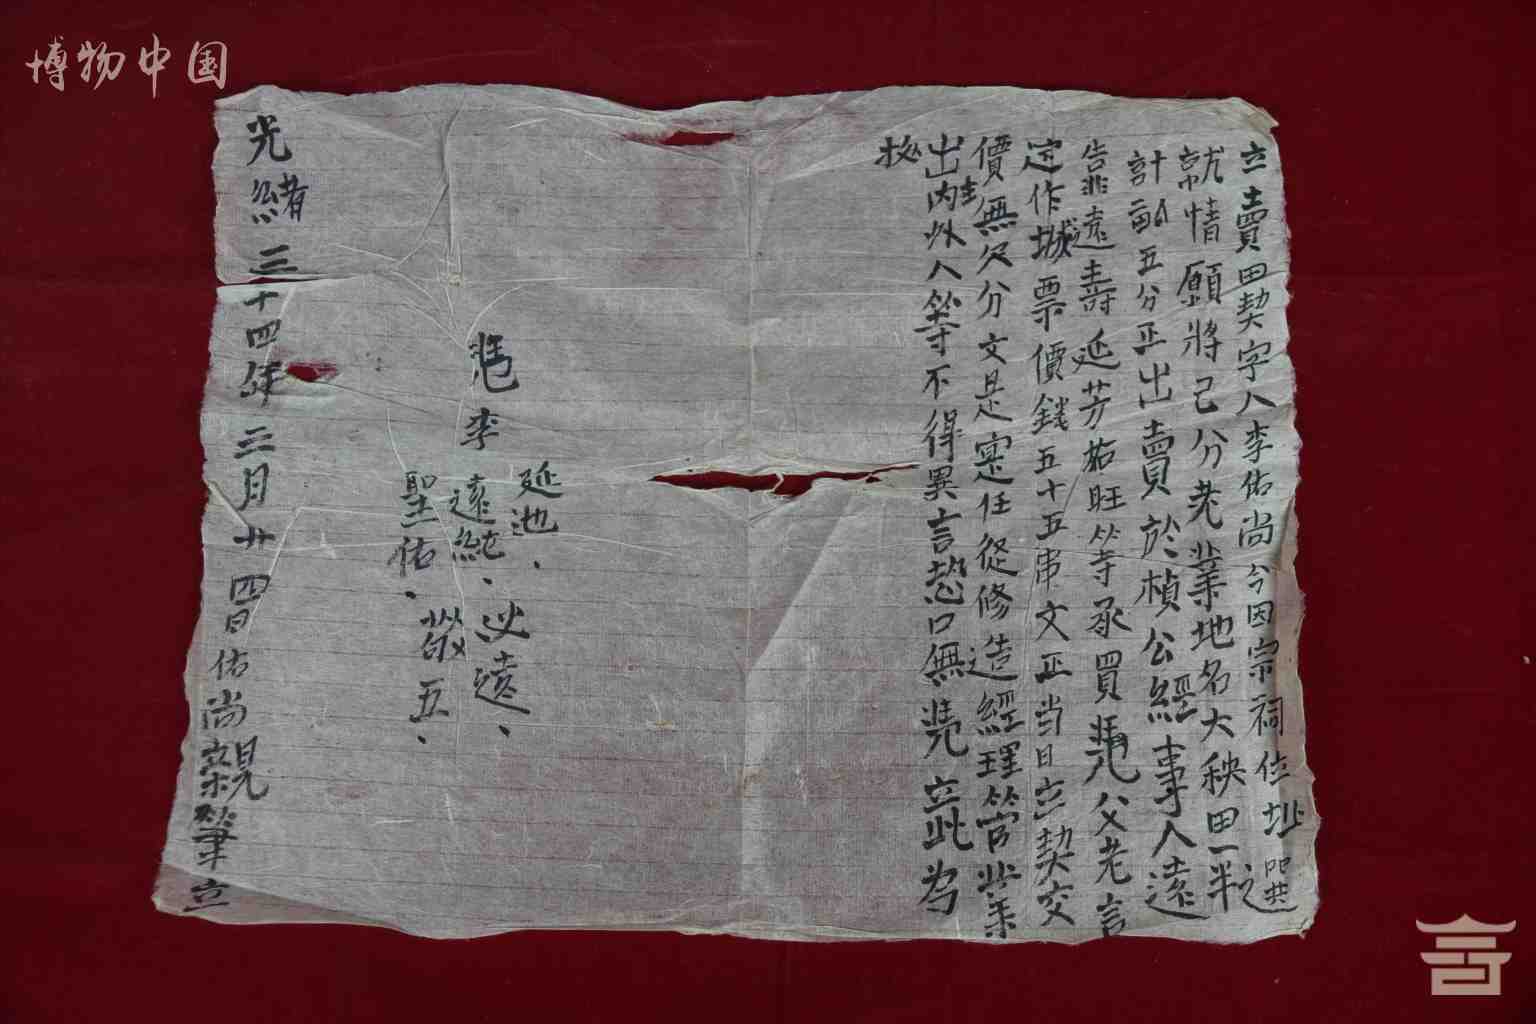 博物中国
立賣田契字人李佑尚今因宗祠位址
就情願將己分老業地名大秧田一半
計畝五分正出賣於楨公經事人遠
告非遠壽延芳祐旺等承買憑父老言
定作城票價錢五十五串文正当日立契交
價無欠分文是寔任從修造經理管業
出内外人等不得異言恐口無憑立此為
據
憑李
延池、
遠純、必遠、
聖佑、敬五、
光緒三十四年三月廿四日佑尚親筆立